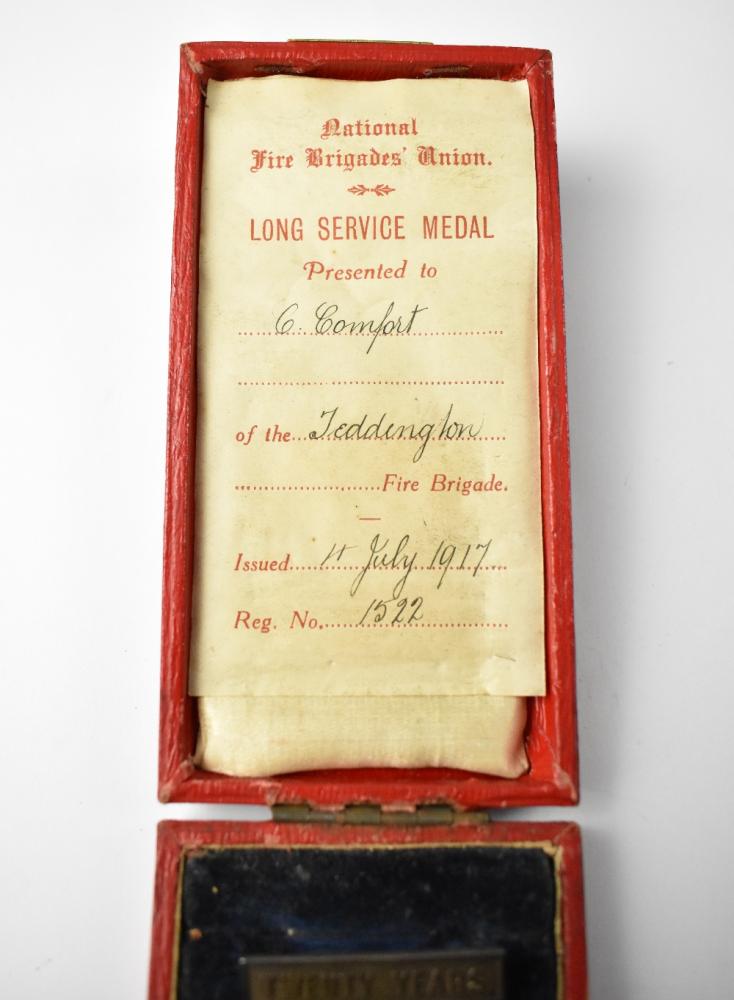 National
Fire Brigades' Union.
LONG SERVICE MEDAL
Presented to
C. Comfort
of the Teddington
Fire Brigade.
Issued July 1917
Reg. No. 1522
TWENTY YEARS